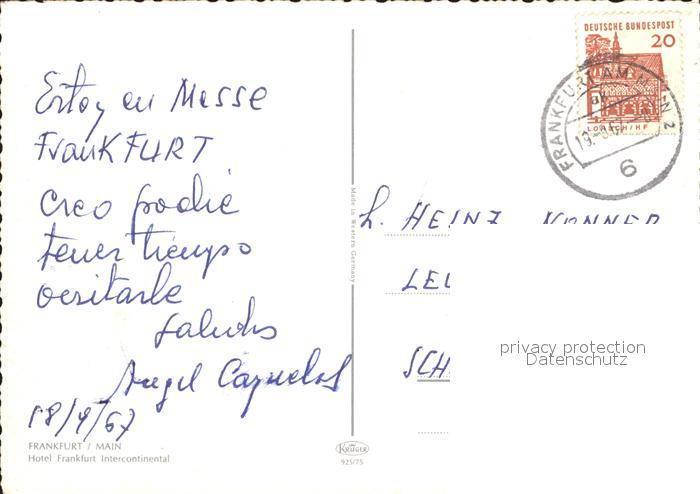 Estoy en Messe
FRANKFURT
Creo podré
tener tiempo
visitarle
saludos
Angel
18/9/67
FRANKFURT / MAIN
Hotel Frankfurt Intercontinental
Made in Western Germany
KRÜGER
925/75
DEUTSCHE BUNDESPOST
20
LORSCH/HF
FRANKFURT AM MAIN 2
6
H. HEINZ
SCH
privacy protection
Datenschutz